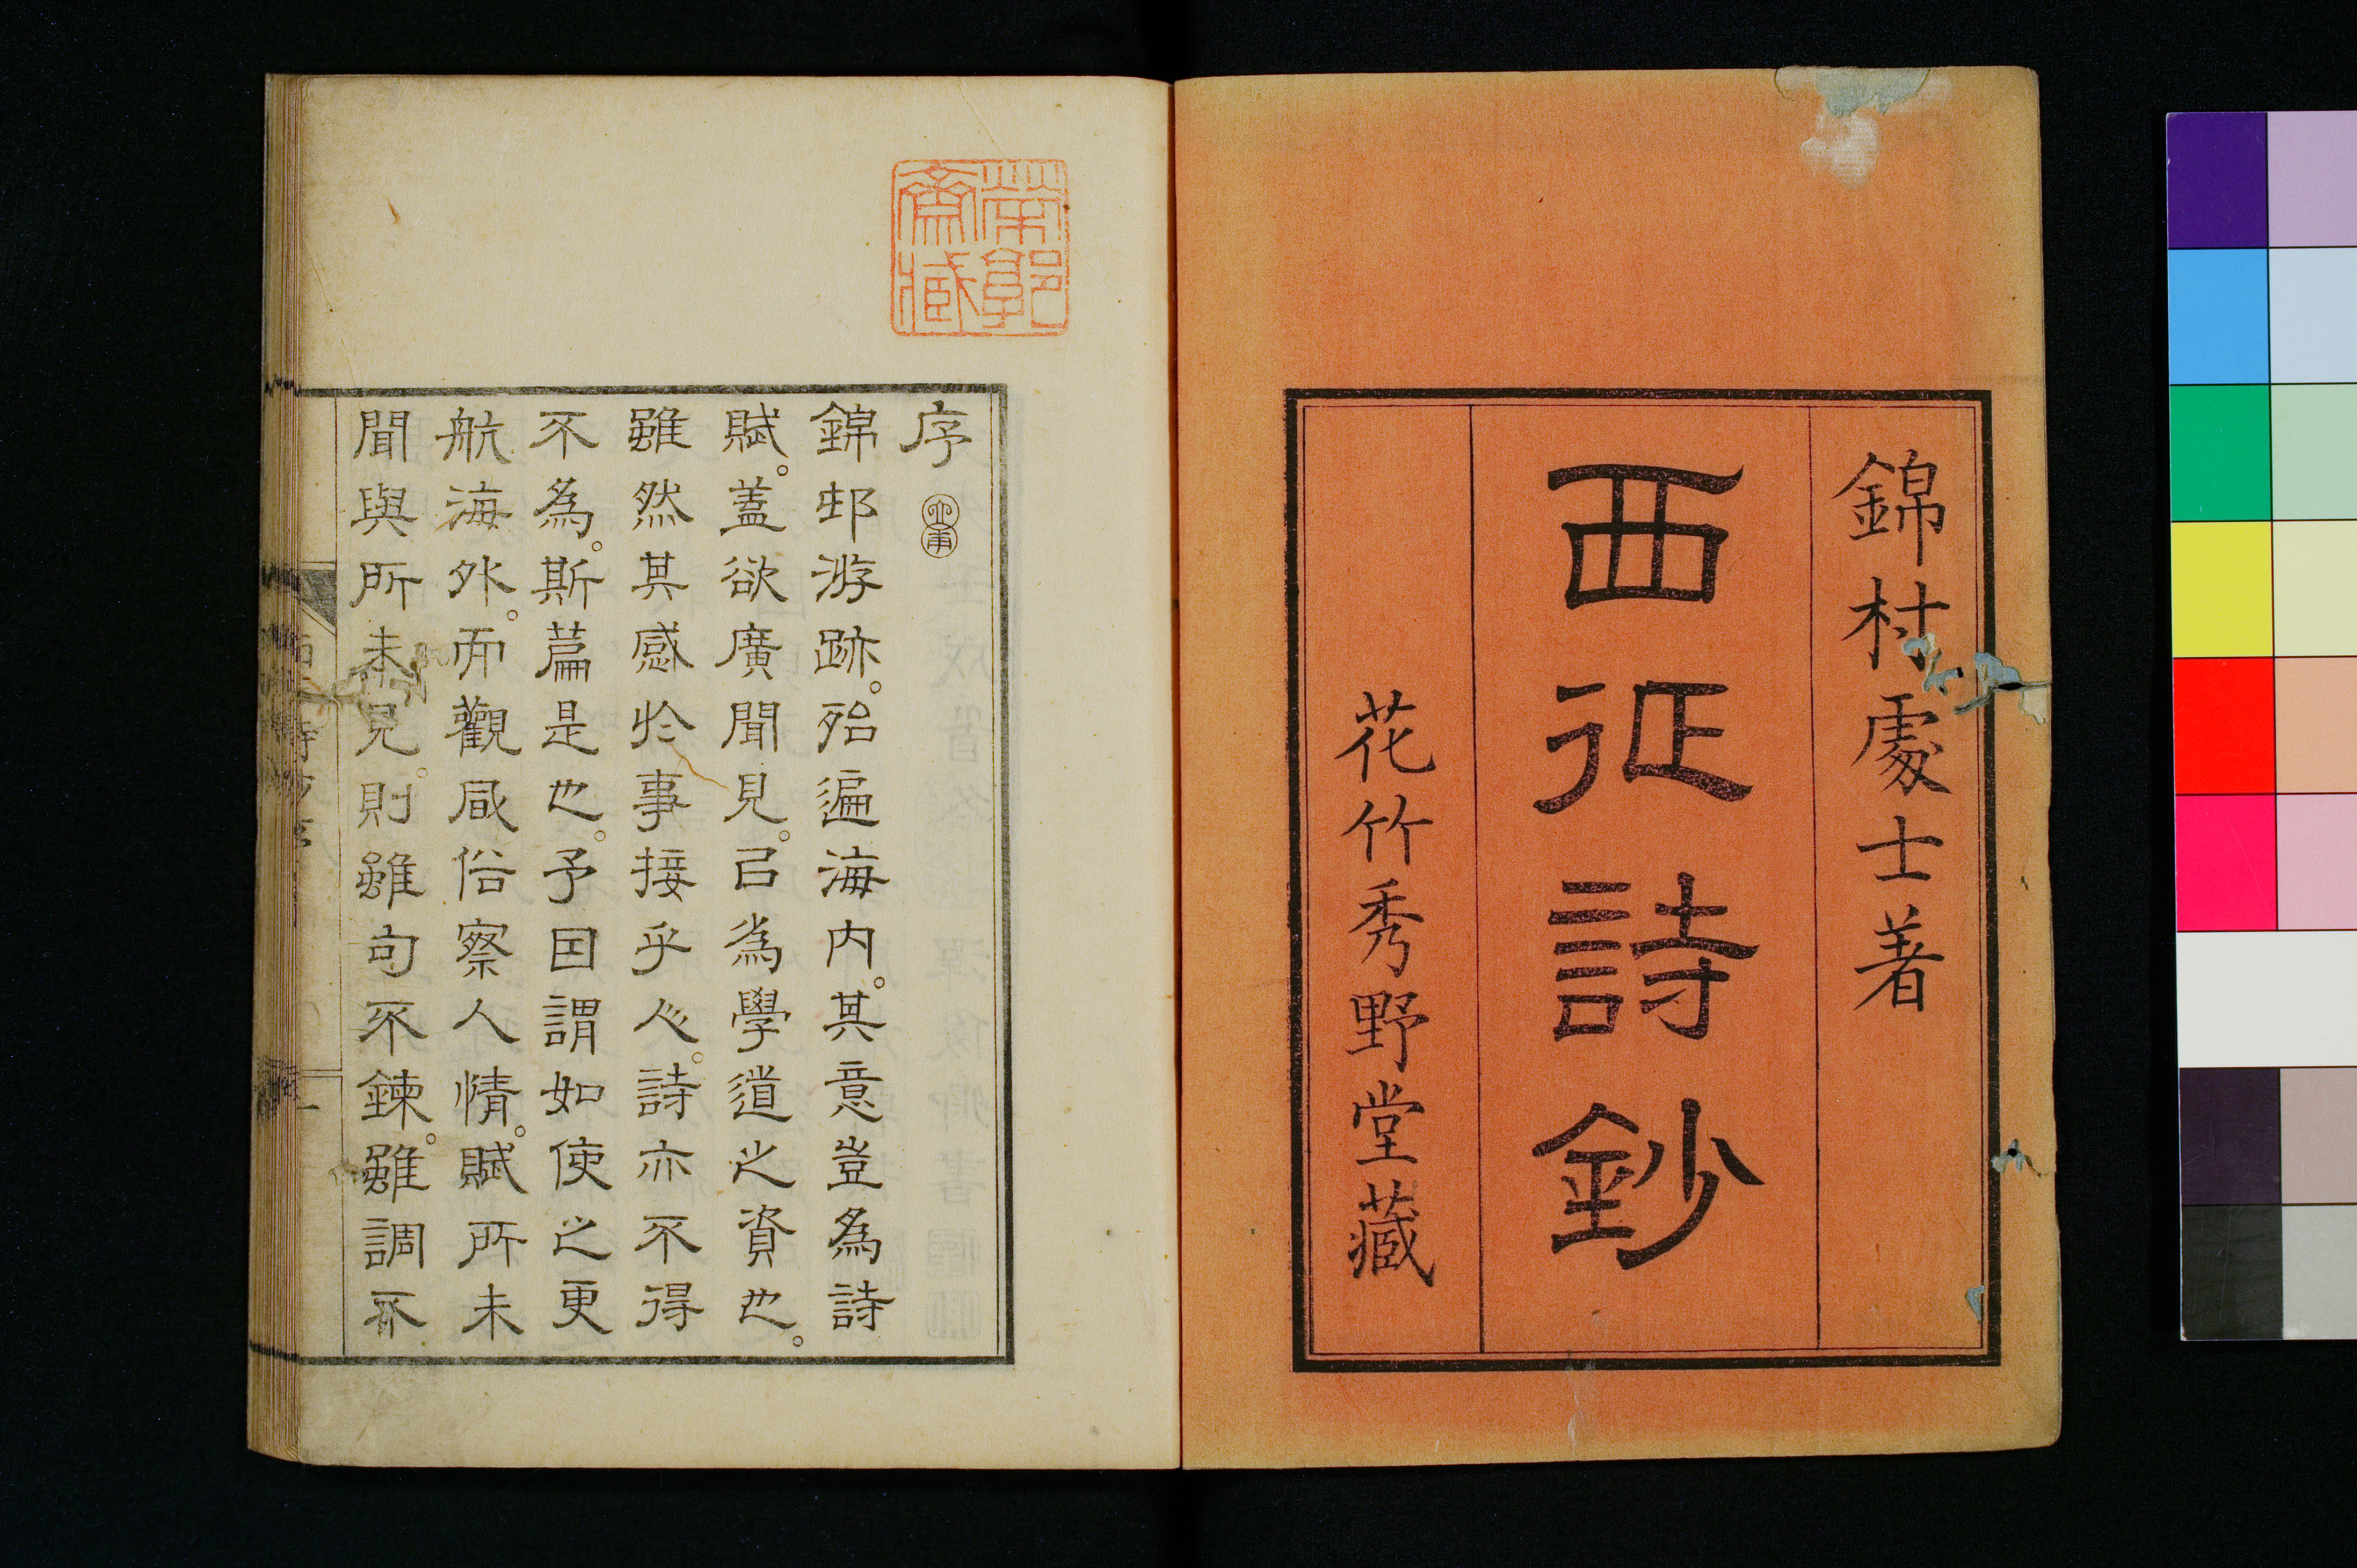 錦村處士著
西征詩鈔
花竹秀野堂藏
帶郭
齋藏
序
錦邨游跡。殆遍海内。其意豈為詩
賦。蓋欲廣聞見。㠯為學道之資也。
雖然其感於事接乎心。詩亦不得
不為。斯篇是也。予因謂如使之更
航海外。而觀風俗察人情。賦所未
聞與所未見。則雖句不鍊。雖調不